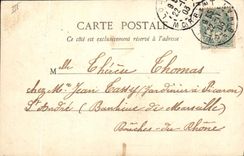 III
CARTE POSTALE
Ce côté est exclusivement réservé à l'adresse
M Thérèse Thomas
chez Mr Jean Cassy (Jardinier à
St André (Banlieue de Marseille)
Bouches-du-Rhône